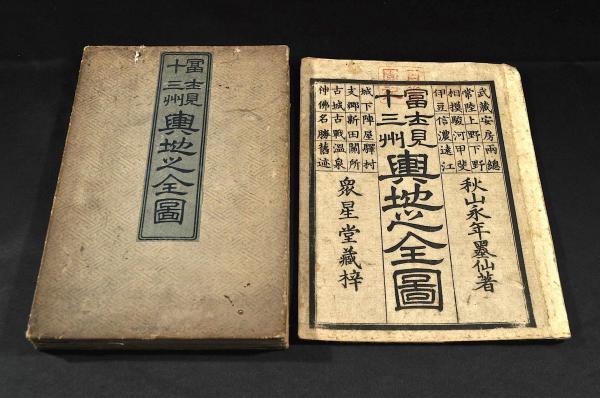 冨士見
十三州
輿地之全圖
武藏安房兩總
常陸上野下野
相摸駿河甲斐
伊豆信濃遠江
秋山永年墨仙著
冨士見
十三州
輿地之全圖
城下陣屋驛村
支郷新田關所
古城古戰温泉
神佛名勝舊迹
衆星堂藏梓